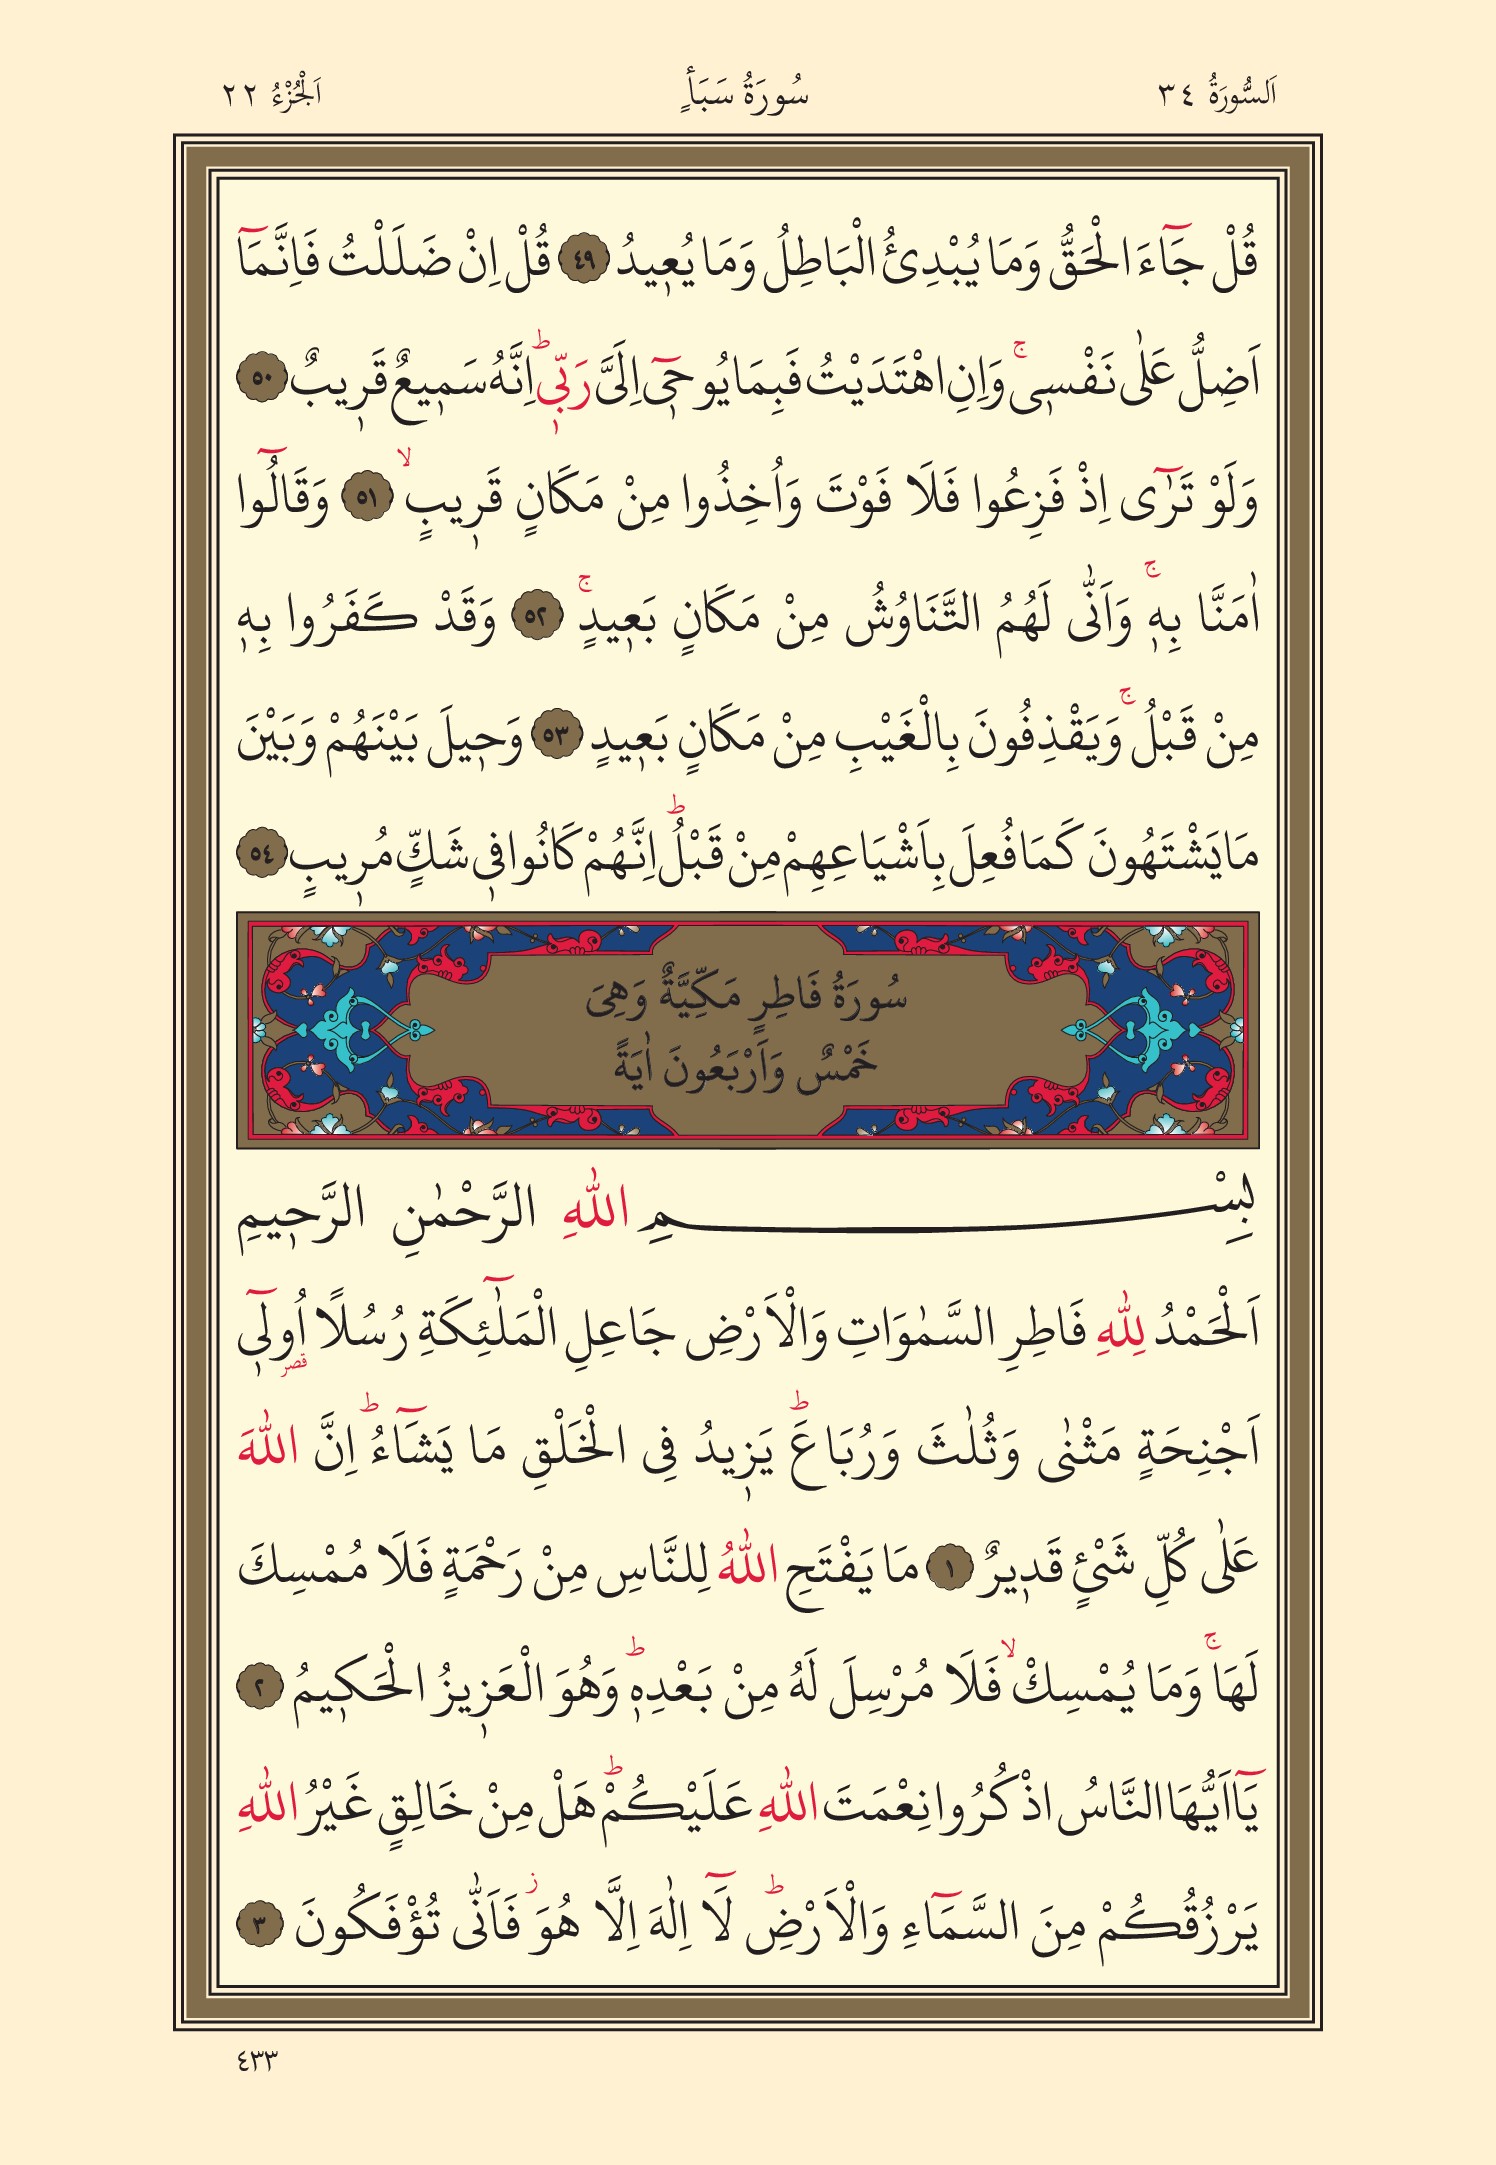 اَلسُّورَةُ ٣٤ سُورَةُ سَبَأٍ اَلْجُزْءُ ٢٢
قُلْ جَٓاءَ الْحَقُّ وَمَا يُبْدِئُ الْبَاطِلُ وَمَا يُعٖيدُ ٤٩ قُلْ اِنْ ضَلَلْتُ فَاِنَّمَٓا
اَضِلُّ عَلٰى نَفْسٖىۚ وَاِنِ اهْتَدَيْتُ فَبِمَا يُوحٖٓى اِلَىَّ رَبّٖىؕ اِنَّهُ سَمٖيعٌ قَرٖيبٌ ٥٠
وَلَوْ تَرٰٓى اِذْ فَزِعُوا فَلَا فَوْتَ وَاُخِذُوا مِنْ مَكَانٍ قَرٖيبٍۙ ٥١ وَقَالُٓوا
اٰمَنَّا بِهٖۚ وَاَنّٰى لَهُمُ التَّنَاوُشُ مِنْ مَكَانٍ بَعٖيدٍۚ ٥٢ وَقَدْ كَفَرُوا بِهٖ
مِنْ قَبْلُۚ وَيَقْذِفُونَ بِالْغَيْبِ مِنْ مَكَانٍ بَعٖيدٍ ٥٣ وَحٖيلَ بَيْنَهُمْ وَبَيْنَ
مَا يَشْتَهُونَ كَمَا فُعِلَ بِاَشْيَاعِهِمْ مِنْ قَبْلُؕ اِنَّهُمْ كَانُوا فٖى شَكٍّ مُرٖيبٍ ٥٤
سُورَةُ فَاطِرٍ مَكِّيَّةٌ وَهِىَ
خَمْسٌ وَاَرْبَعُونَ اٰيَةً
بِسْمِ اللّٰهِ الرَّحْمٰنِ الرَّحٖيمِ
اَلْحَمْدُ لِلّٰهِ فَاطِرِ السَّمٰوَاتِ وَالْاَرْضِ جَاعِلِ الْمَلٰٓئِكَةِ رُسُلًا اُولٖٓى قصر
اَجْنِحَةٍ مَثْنٰى وَثُلٰثَ وَرُبَاعَؕ يَزٖيدُ فِى الْخَلْقِ مَا يَشَٓاءُؕ اِنَّ اللّٰهَ
عَلٰى كُلِّ شَىْءٍ قَدٖيرٌ ١ مَا يَفْتَحِ اللّٰهُ لِلنَّاسِ مِنْ رَحْمَةٍ فَلَا مُمْسِكَ
لَهَاۚ وَمَا يُمْسِكْۙ فَلَا مُرْسِلَ لَهُ مِنْ بَعْدِهٖؕ وَهُوَ الْعَزٖيزُ الْحَكٖيمُ ٢
يَٓا اَيُّهَا النَّاسُ اذْكُرُوا نِعْمَتَ اللّٰهِ عَلَيْكُمْؕ هَلْ مِنْ خَالِقٍ غَيْرُ اللّٰهِ
يَرْزُقُكُمْ مِنَ السَّمَٓاءِ وَالْاَرْضِؕ لَٓا اِلٰهَ اِلَّا هُوَؗ فَاَنّٰى تُؤْفَكُونَ ٣
٤٣٣